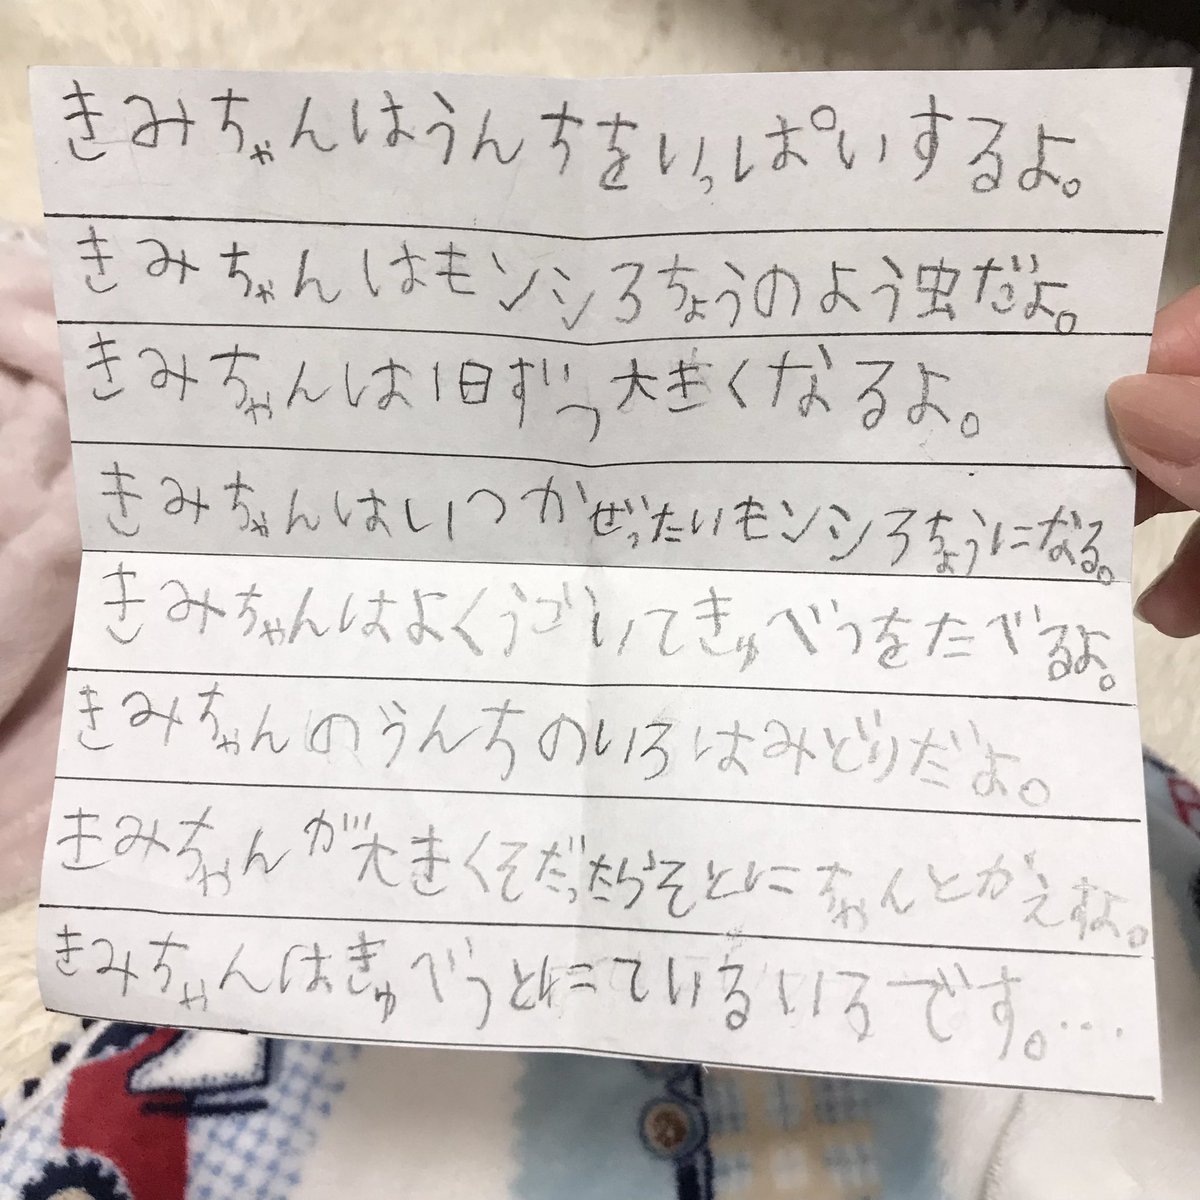 きみちゃんはうんちをいっぱいするよ。
きみちゃんはモンシろちょうのよう虫だよ。
きみちゃんは1日ずつ大きくなるよ。
きみちゃんはいつかぜったいモンシろちょうになる。
きみちゃんはよくうごいてきゅべつをたべるよ。
きみちゃんのうんちのいろはみどりだよ。
きみちゃんが大きくそだったらそとにちゃんとがえすよ。
きみちゃんはきゅべつとにているいろです。…